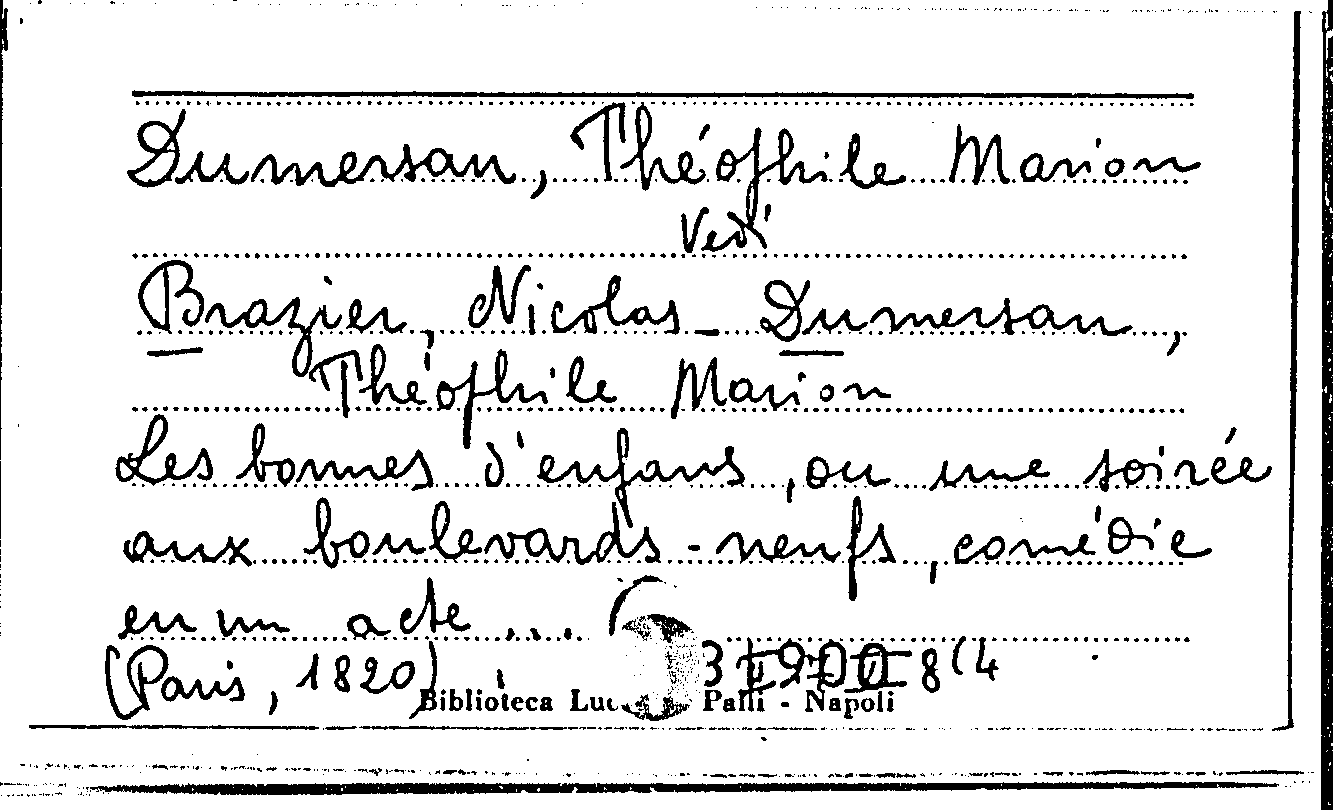 Dumersan, Théophile Marion
Vedi
Brazier, Nicolas - Dumersan,
Théophile Marion
Les bonnes d'enfans, ou une soirée
aux boulevards-neufs, comédie
en un acte ...
(Paris, 1820)
8(4
Biblioteca Palli - Napoli